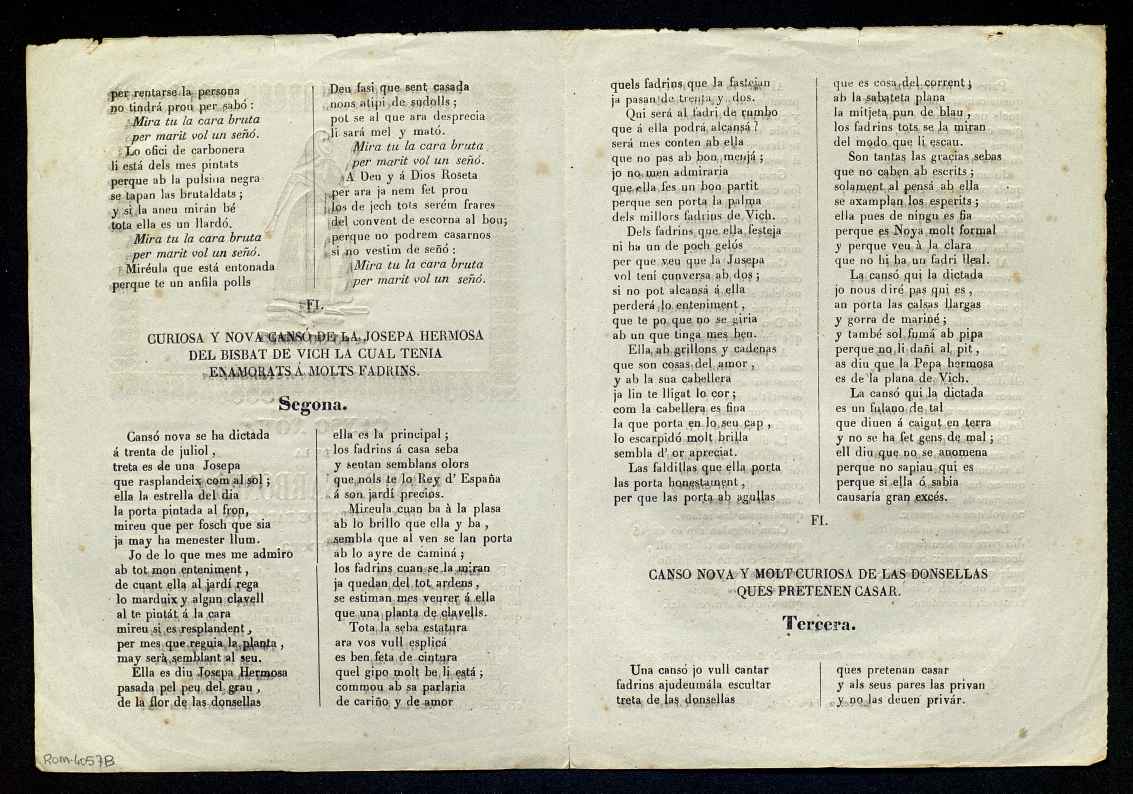 per rentarse la persona
no tindrá prou per sabó :
Mira tu la cara bruta
per marit vol un señó.
Lo ofici de carbonera
li está dels mes pintats
perque ab la pulsina negra
se tapan las brutaldats ;
y si la aneu mirán bé
tota ella es un llardó.
Mira tu la cara bruta
per marit vol un señó.
Miréula que está entonada
perque te un anfila polls
Deu fasi que sent casada
nons atipi de sudolls ;
pot se al que ara desprecia
li sará mel y mató.
Mira tu la cara bruta
per marit vol un señó.
A Deu y á Dios Roseta
per ara ja nem fet prou
los de jech tots serém frares
del convent de escorna al bou;
perque no podrem casarnos
si no vestim de señó :
Mira tu la cara bruta
per marit vol un señó.
FI.
CURIOSA Y NOVA CANSÓ DE LA JOSEPA HERMOSA
DEL BISBAT DE VICH LA CUAL TENIA
ENAMORATS Á MOLTS FADRINS.
Segona.
Cansó nova se ha dictada
á trenta de juliol ,
treta es de una Josepa
que rasplandeix com al sol ;
ella la estrella del dia
la porta pintada al fron,
mireu que per fosch que sia
ja may ha menester llum.
Jo de lo que mes me admiro
ab tot mon enteniment ,
de cuant ella al jardí rega
lo marduix y algun clavell
al te pintát á la cara
mireu si es resplandent ,
per mes que reguia la planta ,
may serà semblant al seu.
Ella es diu Josepa Hermosa
pasada pel peu del grau ,
de la flor de las donsellas
ella es la principal ;
los fadrins á casa seba
y sentan semblans olors
que nols te lo Rey d' España
á son jardí precios.
Mireula cuan ba à la plasa
ab lo brillo que ella y ba ,
sembla que al ven se lan porta
ab lo ayre de caminá ;
los fadrins cuan se la miran
ja quedan del tot ardens ,
se estiman mes veurer á ella
que una planta de clavells.
Tota la seba estatura
ara vos vull esplicá
es ben feta de cintura
quel gipo molt be li está ;
commou ab sa parlaria
de cariño y de amor
quels fadrins que la fastejan
ja pasan de trenta y dos.
Qui será al fadri de rumbo
que á ella podrá alcansá ?
será mes conten ab ella
que no pas ab bon menjá ;
jo no men admiraria
que ella fes un bon partit
perque sen porta la palma
dels millors fadrins de Vich.
Dels fadrins que ella festeja
ni ha un de poch gelós
per que veu que la Jusepa
vol tení cunversa ab dos ;
si no pot alcansá á ella
perderá lo enteniment ,
que te po que no se giria
ab un que tinga mes ben.
Ella ab grillons y cadenas
que son cosas del amor ,
y ab la sua cabellera
ja lin te lligat lo cor ;
com la cabellera es fina
la que porta en lo seu cap ,
lo escarpidó molt brilla
sembla d' or apreciat.
Las faldillas que ella porta
las porta honestament ,
per que las porta ab agullas
que es cosa del corrent ;
ab la sabateta plana
la mitjeta pun de blau ,
los fadrins tots se la miran
del modo que li escau.
Son tantas las gracias sebas
que no caben ab escrits ;
solament al pensá ab ella
se axamplan los esperits ;
ella pues de ningu es fia
perque es Noya molt formal
y perque veu à la clara
que no hi ha un fadri lleal.
La cansó qui la dictada
jo nous diré pas qui es ,
an porta las calsas llargas
y gorra de mariné ;
y també sol fumá ab pipa
perque no li dañi al pit ,
as diu que la Pepa hermosa
es de la plana de Vich.
La cansó qui la dictada
es un fulano de tal
que diuen á caigut en terra
y no se ha fet gens de mal ;
ell diu que no se anomena
perque no sapiau qui es
perque si ella ó sabia
causaría gran excés.
FI.
CANSO NOVA Y MOLT CURIOSA DE LAS DONSELLAS
QUES PRETENEN CASAR.
Tercera.
Una cansó jo vull cantar
fadrins ajudeumála escultar
treta de las donsellas
ques pretenan casar
y als seus pares las privan
y no las deuen privár.
ROM-4057B